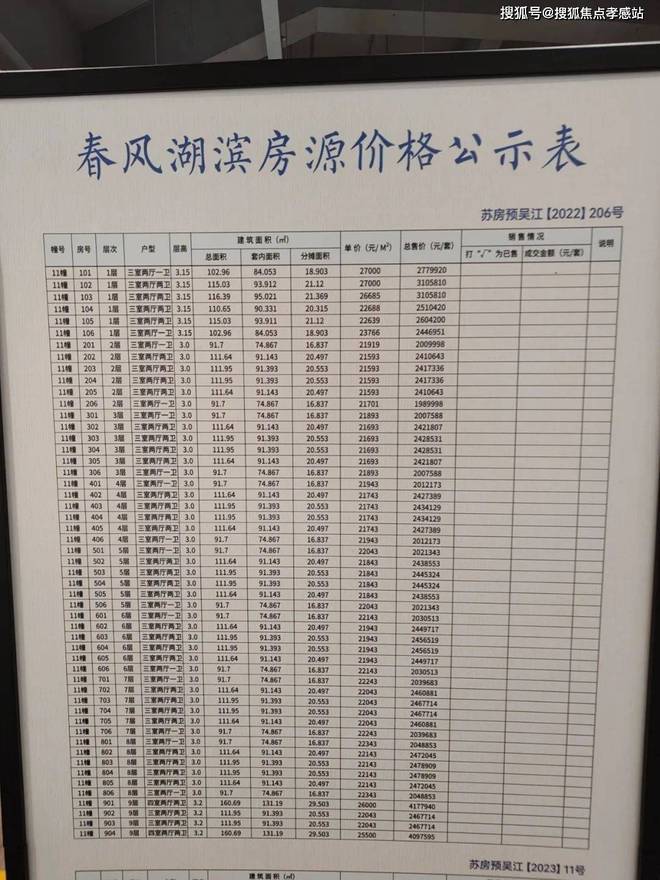 搜狐号@搜狐焦点孝感站
春风湖滨房源价格公示表
苏房预吴江【2022】206号
幢号 房号 层次 户型 层高 建筑面积(㎡) 单价(元/M²) 总售价(元/套) 销售情况 说明
总面积 套内面积 分摊面积 打“√”为已售 成交金额(元/套)
11幢 101 1层 三室两厅一卫 3.15 102.96 84.053 18.903 27000 2779920
11幢 102 1层 三室两厅两卫 3.15 115.03 93.912 21.12 27000 3105810
11幢 103 1层 三室两厅两卫 3.15 116.39 95.021 21.369 26685 3105810
11幢 104 1层 三室两厅两卫 3.15 110.65 90.331 20.315 22688 2510420
11幢 105 1层 三室两厅两卫 3.15 115.03 93.911 21.12 22639 2604200
11幢 106 1层 三室两厅一卫 3.15 102.96 84.053 18.903 23766 2446951
11幢 201 2层 三室两厅一卫 3.0 91.7 74.867 16.837 21919 2009998
11幢 202 2层 三室两厅两卫 3.0 111.64 91.143 20.497 21593 2410643
11幢 203 2层 三室两厅两卫 3.0 111.95 91.393 20.553 21593 2417336
11幢 204 2层 三室两厅两卫 3.0 111.95 91.393 20.553 21593 2417336
11幢 205 2层 三室两厅两卫 3.0 111.64 91.143 20.497 21593 2410643
11幢 206 2层 三室两厅一卫 3.0 91.7 74.867 16.837 21701 1989998
11幢 301 3层 三室两厅一卫 3.0 91.7 74.867 16.837 21893 2007588
11幢 302 3层 三室两厅两卫 3.0 111.64 91.143 20.497 21693 2421807
11幢 303 3层 三室两厅两卫 3.0 111.95 91.393 20.553 21693 2428531
11幢 304 3层 三室两厅两卫 3.0 111.95 91.393 20.553 21693 2428531
11幢 305 3层 三室两厅两卫 3.0 111.64 91.143 20.497 21693 2421807
11幢 306 3层 三室两厅一卫 3.0 91.7 74.867 16.837 21893 2007588
11幢 401 4层 三室两厅一卫 3.0 91.7 74.867 16.837 21943 2012173
11幢 402 4层 三室两厅两卫 3.0 111.64 91.143 20.497 21743 2427389
11幢 403 4层 三室两厅两卫 3.0 111.95 91.393 20.553 21743 2434129
11幢 404 4层 三室两厅两卫 3.0 111.95 91.393 20.553 21743 2434129
11幢 405 4层 三室两厅两卫 3.0 111.64 91.143 20.497 21743 2427389
11幢 406 4层 三室两厅一卫 3.0 91.7 74.867 16.837 21943 2012173
11幢 501 5层 三室两厅一卫 3.0 91.7 74.867 16.837 22043 2021343
11幢 502 5层 三室两厅两卫 3.0 111.64 91.143 20.497 21843 2438553
11幢 503 5层 三室两厅两卫 3.0 111.95 91.393 20.553 21843 2445324
11幢 504 5层 三室两厅两卫 3.0 111.95 91.393 20.553 21843 2445324
11幢 505 5层 三室两厅两卫 3.0 111.64 91.143 20.497 21843 2438553
11幢 506 5层 三室两厅一卫 3.0 91.7 74.867 16.837 22043 2021343
11幢 601 6层 三室两厅一卫 3.0 91.7 74.867 16.837 22143 2030513
11幢 602 6层 三室两厅两卫 3.0 111.64 91.143 20.497 21943 2449717
11幢 603 6层 三室两厅两卫 3.0 111.95 91.393 20.553 21943 2456519
11幢 604 6层 三室两厅两卫 3.0 111.95 91.393 20.553 21943 2456519
11幢 605 6层 三室两厅两卫 3.0 111.64 91.143 20.497 21943 2449717
11幢 606 6层 三室两厅一卫 3.0 91.7 74.867 16.837 22143 2030513
11幢 701 7层 三室两厅一卫 3.0 91.7 74.867 16.837 22243 2039683
11幢 702 7层 三室两厅两卫 3.0 111.64 91.143 20.497 22043 2460881
11幢 703 7层 三室两厅两卫 3.0 111.95 91.393 20.553 22043 2467714
11幢 704 7层 三室两厅两卫 3.0 111.95 91.393 20.553 22043 2467714
11幢 705 7层 三室两厅两卫 3.0 111.64 91.143 20.497 22043 2460881
11幢 706 7层 三室两厅一卫 3.0 91.7 74.867 16.837 22243 2039683
11幢 801 8层 三室两厅一卫 3.0 91.7 74.867 16.837 22343 2048853
11幢 802 8层 三室两厅两卫 3.0 111.64 91.143 20.497 22143 2472045
11幢 803 8层 三室两厅两卫 3.0 111.95 91.393 20.553 22143 2478909
11幢 804 8层 三室两厅两卫 3.0 111.95 91.393 20.553 22143 2478909
11幢 805 8层 三室两厅两卫 3.0 111.64 91.143 20.497 22143 2472045
11幢 806 8层 三室两厅一卫 3.0 91.7 74.867 16.837 22343 2048853
11幢 901 9层 四室两厅两卫 3.2 160.69 131.19 29.503 26000 4177940
11幢 902 9层 三室两厅两卫 3.2 111.95 91.393 20.553 22043 2467714
11幢 903 9层 三室两厅两卫 3.2 111.95 91.393 20.553 22043 2467714
11幢 904 9层 四室两厅两卫 3.2 160.69 131.19 29.503 25500 4097595
苏房预吴江【2023】11号
建筑面积(㎡)